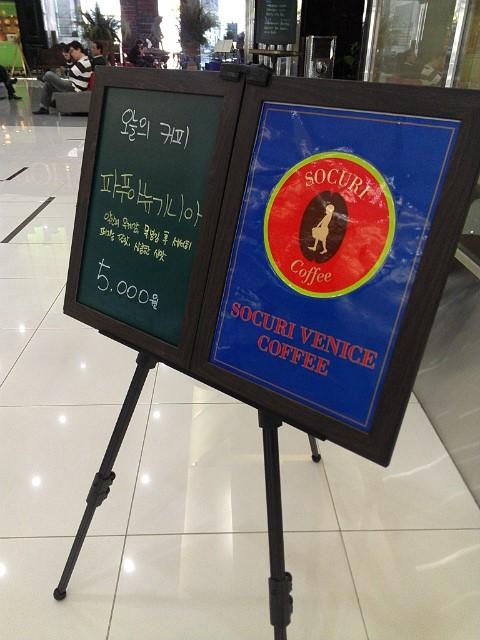 오늘의 커피
파푸아뉴기니아
5.000원
SOCURI
Coffee
SOCURI VENICE
COFFEE